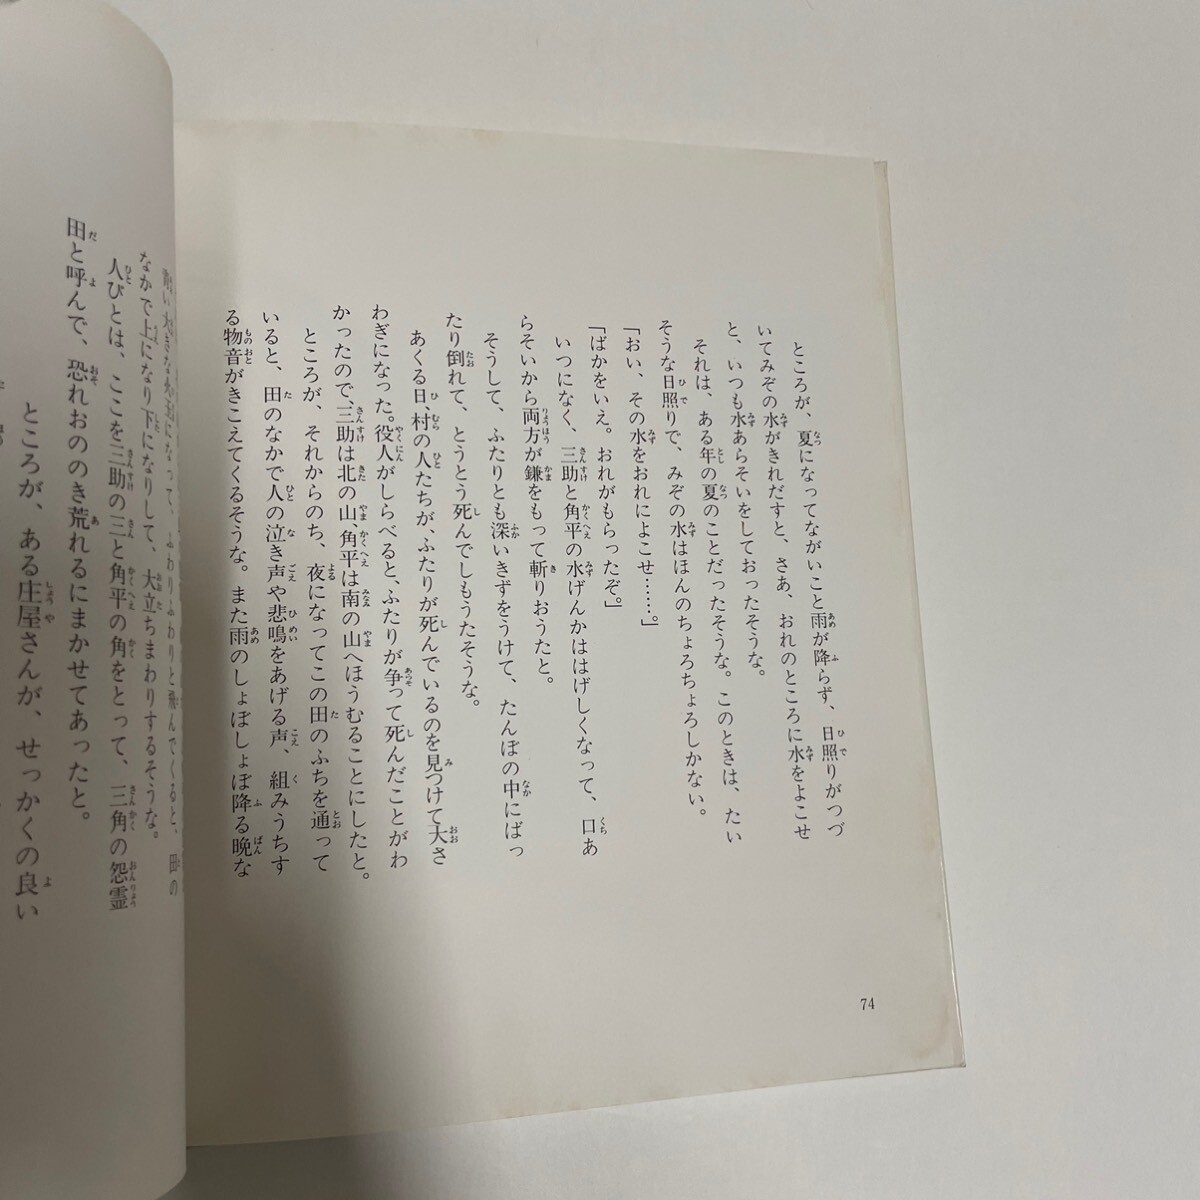 ところが、夏になってながいこと雨が降らず、日照りがつづ
いてみぞの水がきれだすと、さあ、おれのところに水をよこせ
と、いつも水あらそいをしておったそうな。
それは、ある年の夏のことだったそうな。このときは、たい
そうな日照りで、みぞの水はほんのちょろちょろしかない。
「おい、その水をおれによこせ……。」
「ばかをいえ。おれがもらったぞ。」
いつになく、三助と角平の水げんかははげしくなって、口あ
らそいから両方が鎌をもって斬りおうたと。
そうして、ふたりとも深いきずをうけて、たんぼの中にばっ
たり倒れて、とうとう死んでしもうたそうな。
あくる日、村の人たちが、ふたりが死んでいるのを見つけて大さ
わぎになった。役人がしらべると、ふたりが争って死んだことがわ
かったので、三助は北の山、角平は南の山へほうむることにしたと。
ところが、それからのち、夜になってこの田のふちを通って
いると、田のなかで人の泣き声や悲鳴をあげる声、組みうちす
る物音がきこえてくるそうな。また雨のしょぼしょぼ降る晩な
74
大きな火玉になって、ふわりふわりと飛んでくると、田の
なかで上になり下になりして、大立ちまわりするそうな。
人びとは、ここを三助の三と角平の角をとって、三角の怨霊
田と呼んで、恐れおののき荒れるにまかせてあったと。
ところが、ある庄屋さんが、せっかくの良い